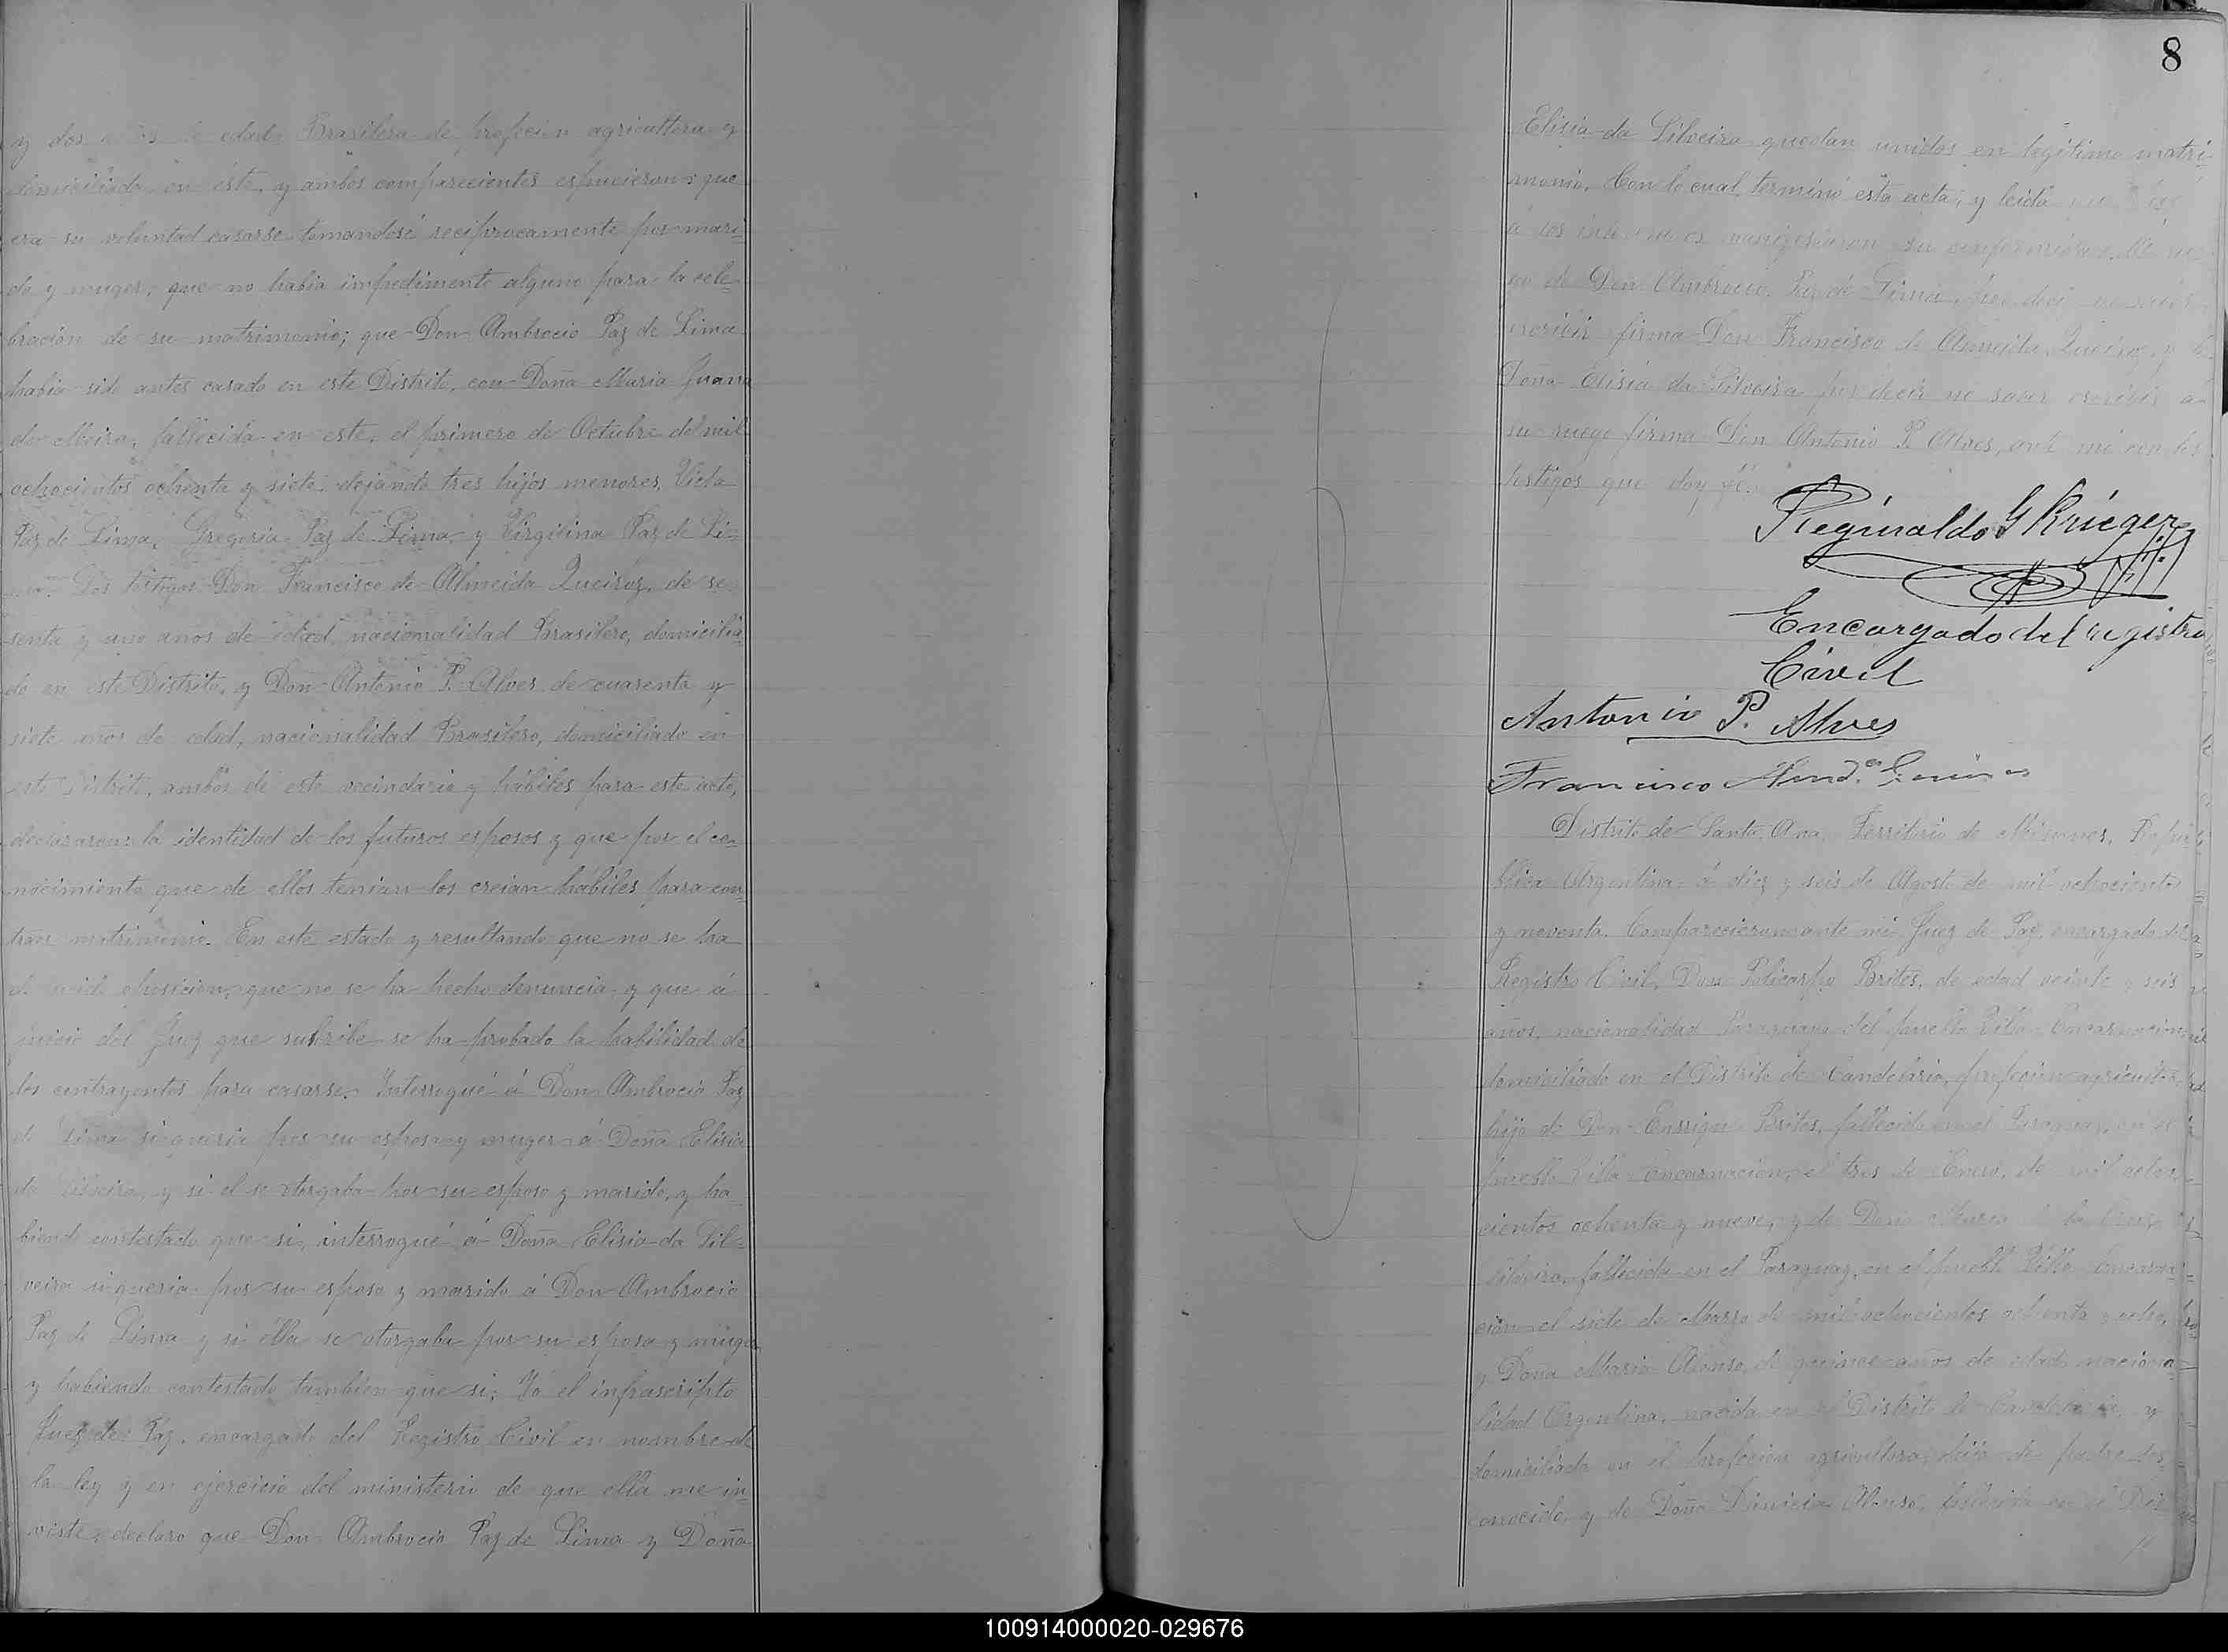 y dos de edad, Brasilera de profecion agricultora y
domiciliada en éste, y ambos comparecientes espucieron: que
era su voluntad casarse tomandosé reciprocamente por mari-
do y muger, que no habia impedimento alguno para la cele-
bración de su matrimonio; que Don Ambrocio Paz de Lima
habia sido antes casado en este Distrito, con Doña Maria Juana
de Meira, fallecida en este, el primero de Octubre del mil
ochocientos ochenta y siete, dejando tres hijos menores, Victa
Paz de Lima, Gregoria Paz de Lima, y Virgilina Paz de Li-
ma. Los testigos Don Francisco de Almeida Queiroz, de se-
senta y uno años de edad, nacionalidad Brasilero, domicilia-
do en este Distrito, y Don Antonio P. Alves de cuarenta y
siete años de edad, nacionalidad Brasilero, domiciliado en
este Distrito, ambos de este vecindario y hábiles para este acto,
declararon: la identidad de los futuros esposos y que por el co-
nocimiento que de ellos tenian los creian hábiles para con-
traer matrimonio. En este estado y resultando que no se ha
deducido oposicion, que no se ha hecho denuncia y que á
juicio del Juez que suscribe se ha probado la habilidad de
los contrayentes para casarse. Interrogué á Don Ambrocio Paz
de Lima si queria por su esposa y muger á Doña Elisia
da Silveira, y si el se otorgaba por su esposo y marido, y ha-
biendo contestado que si, interrogué á Doña Elisia da Sil-
veira si queria por su esposo y marido á Don Ambrocio
Paz de Lima y si élla se otorgaba por su esposa y muger
y habiendo contestado tambien que si; Yo el infrascripto
Juez de Paz, encargado del Registro Civil en nombre de
la ley y en ejercicio del ministerio de que ella me in-
viste, declaro que Don Ambrocio Paz de Lima y Doña
8
Elisia da Silveira quedan unidos en legitimo matri-
monio. Con lo cual terminó esta acta, y leida
á los manifestaron su conformidad. A rue-
go de Don Ambrocio Paz de Lima, por decir no saber
escribir firma Don Francisco de Almeida Queiroz, y
Doña Elisia da Silveira por decir no saber escribir a
su ruego firma Don Antonio P. Alves, ante mi con los
testigos que doy fé.
Reginaldo G Krieger
Encargado del registro
Civil
Antonio P. Alves
Francisco
Distrito de Santa Ana, Territorio de Misiones, Repú-
blica Argentina á diez y seis de Agosto de mil ochocientos
y noventa. Comparecieron ante mi Juez de Paz, encargado del
Registro Civil, Don Policarpo Brites, de edad veinte y seis
años, nacionalidad Paraguaya del pueblo Villa Encarnacion
domiciliado en el Distrito de Candelaria, profecion agricultor,
hijo de Don Enrique Brites, fallecido en el Paraguay, en el
pueblo Villa Encarnacion, el tres de Enero, de mil ocho-
cientos ochenta y nueve, y de Doña
Silveira, fallecida en el Paraguay, en el pueblo Villa Encarna-
ción el siete de Marzo de mil ochocientos ochenta y ocho,
y Doña Maria Alonso, de quince años de edad, naciona-
lidad Argentina, nacida en el Distrito de Candelaria, y
domiciliada en él profecion agricultora, hija de padre des-
conocido, y de Doña Alonso, fallecida en el Dis-
100914000020-029676